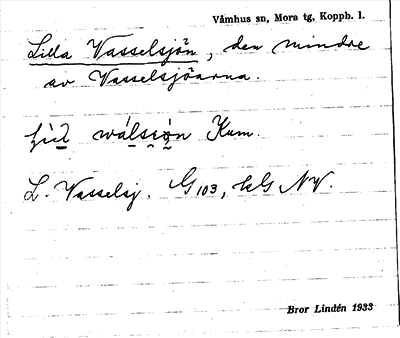 Våmhus sn, Mora tg, Koppb. l.
Lilla Vasselsjön, den mindre
av Vasselsjöarna.
Kum.
L. Vasselsj. G 103, bl G NV.
Bror Lindén 1933